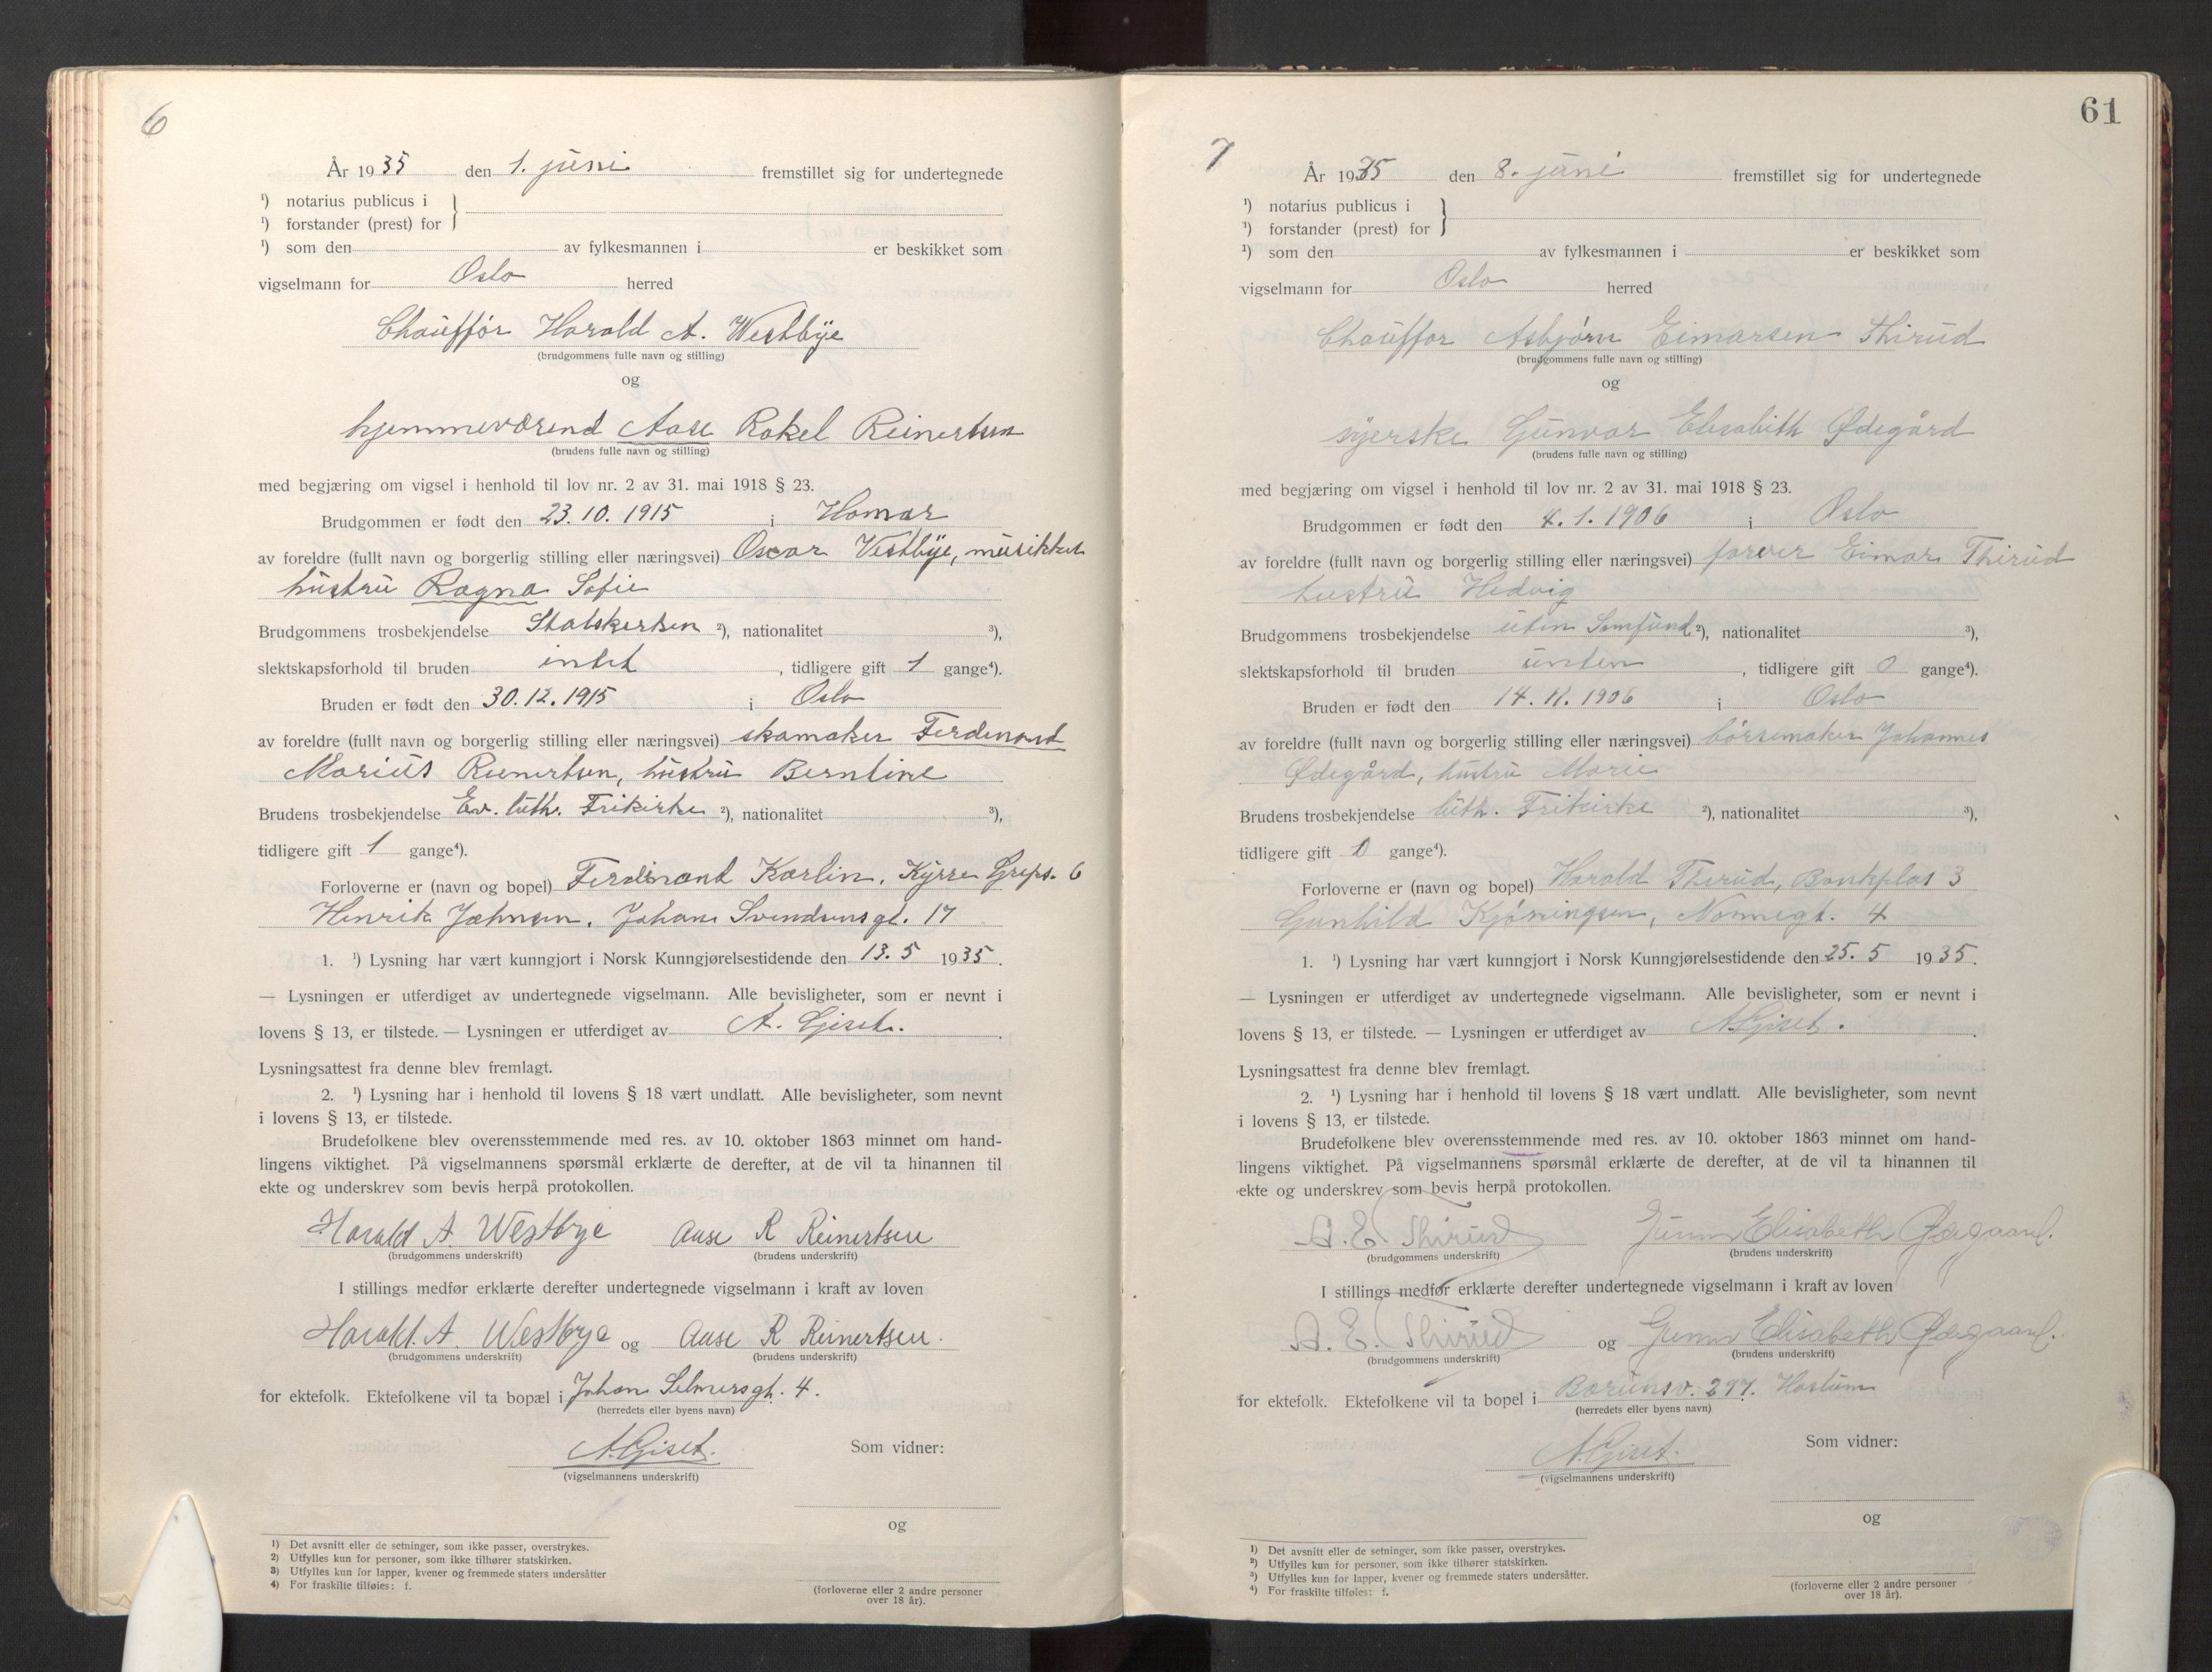 6
År 1935 den 1. juni fremstillet sig for undertegnede
¹) notarius publicus i
¹) forstander (prest) for
¹) som den av fylkesmannen i er beskikket som
vigselmann for Oslo herred
Chauffør Harald A. Westbye
(brudgommens fulle navn og stilling)
og
hjemmeværend Aase Rakel Reinertsen
(brudens fulle navn og stilling)
med begjæring om vigsel i henhold til lov nr. 2 av 31. mai 1918 § 23.
Brudgommen er født den 23.10.1915 i Hamar
av foreldre (fullt navn og borgerlig stilling eller næringsvei) Oscar Vestbye, musikker
hustru Ragna Sofie
Brudgommens trosbekjendelse Statskirken ²), nationalitet ³),
slektskapsforhold til bruden intet, tidligere gift 1 gange⁴).
Bruden er født den 30.12.1915 i Oslo
av foreldre (fullt navn og borgerlig stilling eller næringsvei) skomaker Ferdinand
Marius Reinertsen, hustru Berntine
Brudens trosbekjendelse Ev. luth. Frikirke ²), nationalitet ³),
tidligere gift 1 gange⁴).
Forloverne er (navn og bopel) Ferdinand Karlin, Kyrre Greps. 6
Henrik Jahnsen, Johan Svendsensgt. 17
1. ¹) Lysning har vært kunngjort i Norsk Kunngjørelsestidende den 13.5 1935.
— Lysningen er utferdiget av undertegnede vigselmann. Alle bevisligheter, som er nevnt i
lovens § 13, er tilstede. — Lysningen er utferdiget av A. Giset.
Lysningsattest fra denne blev fremlagt.
2. ¹) Lysning har i henhold til lovens § 18 vært undlatt. Alle bevisligheter, som nevnt
i lovens § 13, er tilstede.
Brudefolkene blev overensstemmende med res. av 10. oktober 1863 minnet om hand-
lingens viktighet. På vigselmannens spørsmål erklærte de derefter, at de vil ta hinannen til
ekte og underskrev som bevis herpå protokollen.
Harald A. Westbye Aase R Reinertsen
(brudgommens underskrift) (brudens underskrift)
I stillings medfør erklærte derefter undertegnede vigselmann i kraft av loven
Harald A. Westbye og Aase R Reinertsen.
(brudgommens underskrift) (brudens underskrift)
for ektefolk. Ektefolkene vil ta bopæl i Johan Selmersgt. 4.
(herredets eller byens navn)
A. Giset. Som vidner:
(vigselmannens underskrift)
og
¹) Det avsnitt eller de setninger, som ikke passer, overstrykes.
²) Utfylles kun for personer, som ikke tilhører statskirken.
³) Utfylles kun for lapper, kvener og fremmede staters undersåtter
⁴) For fraskilte tilføies: f.
(forloverne eller 2 andre personer
over 18 år).
61
7
År 1935 den 8. juni fremstillet sig for undertegnede
¹) notarius publicus i
¹) forstander (prest) for
¹) som den av fylkesmannen i er beskikket som
vigselmann for Oslo herred
Chauffør Asbjørn Eimarsen Thirud
(brudgommens fulle navn og stilling)
og
syerske Gunvor Elisabeth Ødegård
(brudens fulle navn og stilling)
med begjæring om vigsel i henhold til lov nr. 2 av 31. mai 1918 § 23.
Brudgommen er født den 4.1.1906 i Oslo
av foreldre (fullt navn og borgerlig stilling eller næringsvei) farver Eimar Thirud
hustru Hedvig
Brudgommens trosbekjendelse uten Samfund ²), nationalitet ³),
slektskapsforhold til bruden, tidligere gift 0 gange⁴).
Bruden er født den 14.11.1906 i Oslo
av foreldre (fullt navn og borgerlig stilling eller næringsvei) børsemaker Johannes
Ødegård, hustru Marie
Brudens trosbekjendelse luth. Frikirke ²), nationalitet ³),
tidligere gift 0 gange⁴).
Forloverne er (navn og bopel) Harald Thirud, Bankplas 3
Gunhild Kjøningsen, Nonnegt. 4
1. ¹) Lysning har vært kunngjort i Norsk Kunngjørelsestidende den 25.5 1935.
— Lysningen er utferdiget av undertegnede vigselmann. Alle bevisligheter, som er nevnt i
lovens § 13, er tilstede. — Lysningen er utferdiget av A. Giset.
Lysningsattest fra denne blev fremlagt.
2. ¹) Lysning har i henhold til lovens § 18 vært undlatt. Alle bevisligheter, som nevnt
i lovens § 13, er tilstede.
Brudefolkene blev overensstemmende med res. av 10. oktober 1863 minnet om hand-
lingens viktighet. På vigselmannens spørsmål erklærte de derefter, at de vil ta hinannen til
ekte og underskrev som bevis herpå protokollen.
A. E. Thirud Gunvor Elisabeth Ødegaard.
(brudgommens underskrift) (brudens underskrift)
I stillings medfør erklærte derefter undertegnede vigselmann i kraft av loven
A. E. Thirud og Gunvor Elisabeth Ødegaard.
(brudgommens underskrift) (brudens underskrift)
for ektefolk. Ektefolkene vil ta bopel i Bærumsv. 297. Haslum
(herredets eller byens navn)
A. Giset. Som vidner:
(vigselmannens underskrift)
og
¹) Det avsnitt eller de setninger, som ikke passer, overstrykes.
²) Utfylles kun for personer, som ikke tilhører statskirken.
³) Utfylles kun for lapper, kvener og fremmede staters undersåtter.
⁴) For fraskilte tilføies: f.
(forloverne eller 2 andre personer
over 18 år).